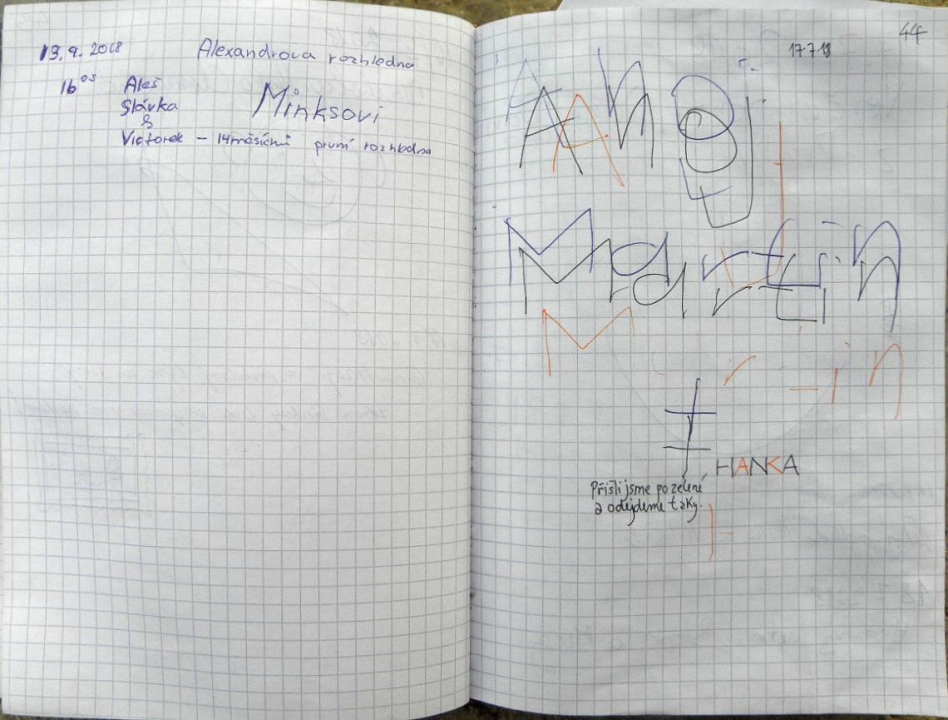 13.9.2018 Alexandrova rozhledna
16⁰⁵ Aleš
Slávka
&
Minksovi
Victorek – 14měsíční první rozhledna
44
17.7.18
Martin
HANKA
Přišli jsme po zelené
a odejdeme taky.